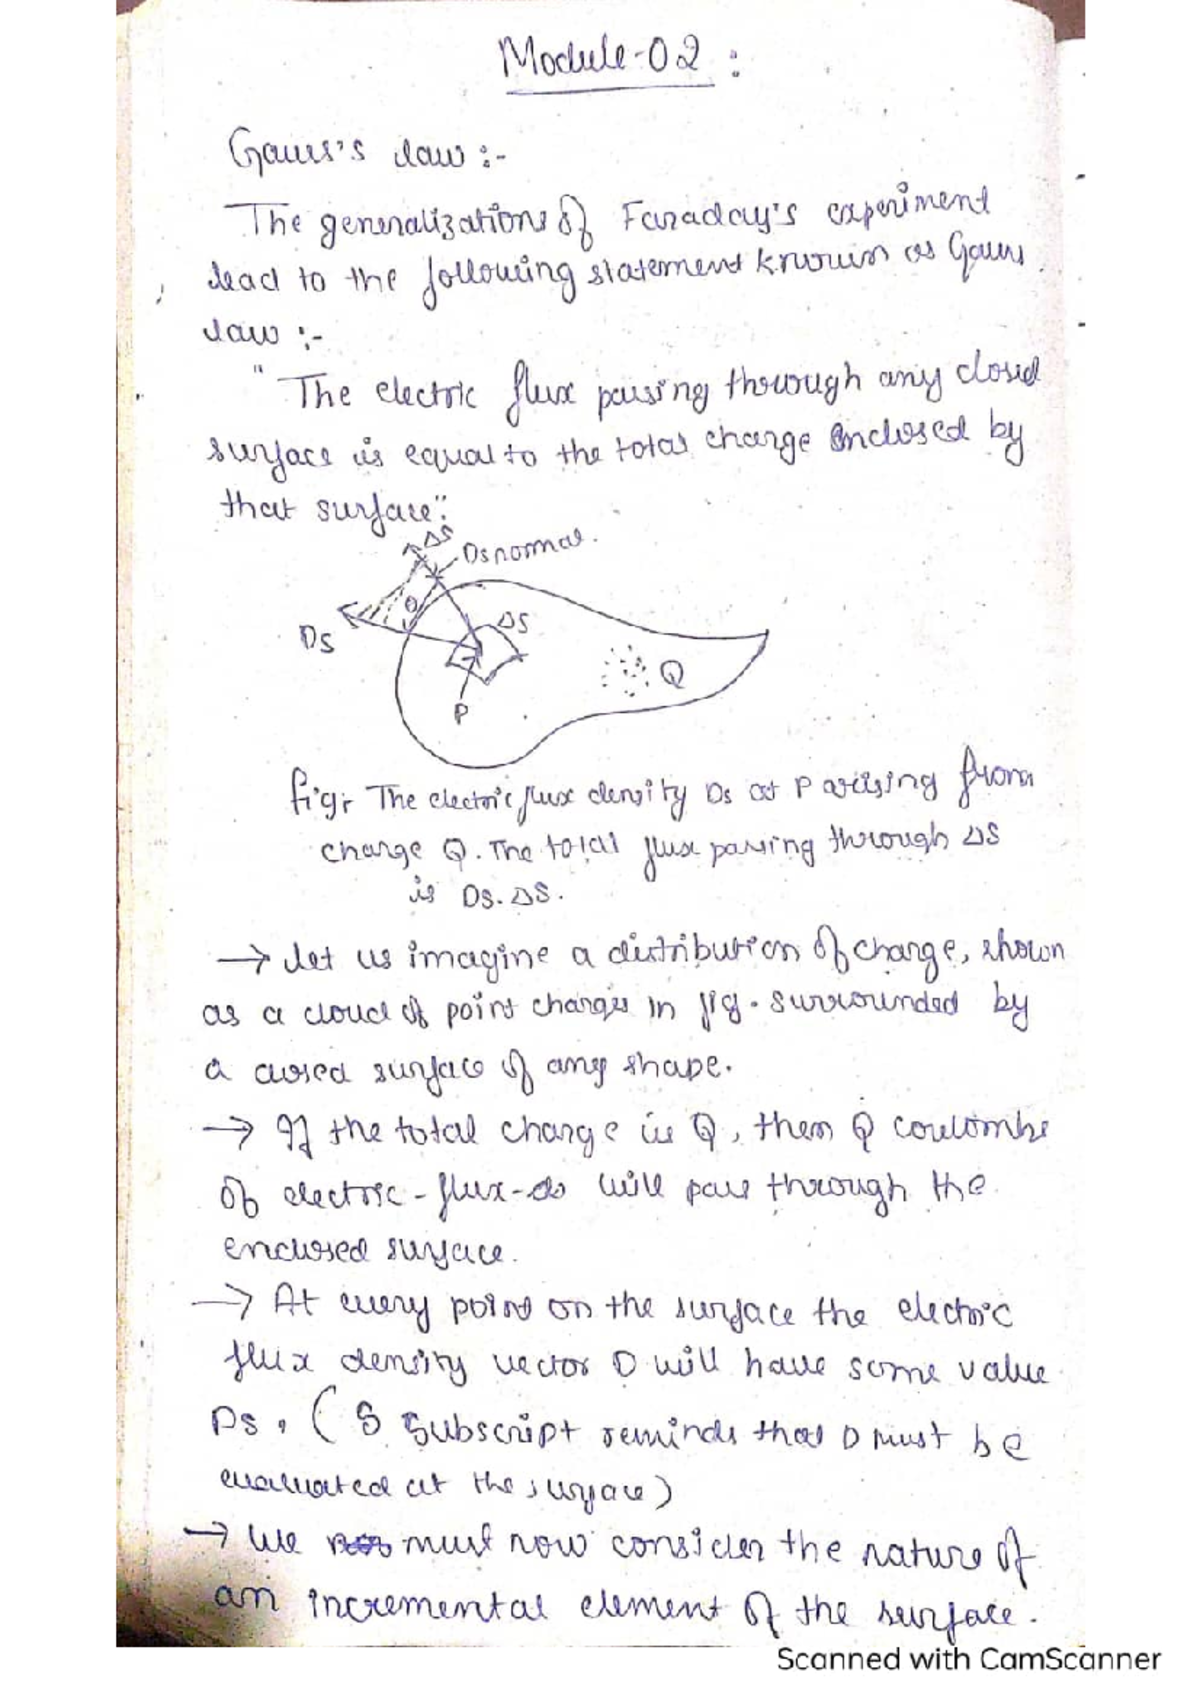 Module-02 :
Gauss's law :-
The generalizations of Faraday's experiment
lead to the following statement known as Gauss
law :-
" The electric flux passing through any closed
surface is equal to the total charge enclosed by
that surface".
ΔS
Ds normal.
θ
Ds
ΔS
Q
P
fig: The electric flux density Ds at P arising from
charge Q. The total flux passing through ΔS
is Ds. ΔS.
→ let us imagine a distribution of charge, shown
as a cloud of point charges in fig. surrounded by
a closed surface of any shape.
→ If the total charge is Q, then Q coulombs
of electric-flux- will pass through the
enclosed surface.
→ At every point on the surface the electric
flux density vector D will have some value
Ds, ( S Subscript reminds that D must be
evaluated at the surface)
→ We must now consider the nature of
an incremental element of the surface.
Scanned with CamScanner